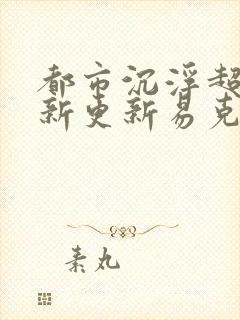 都市沉浮超
新更新易克
素丸